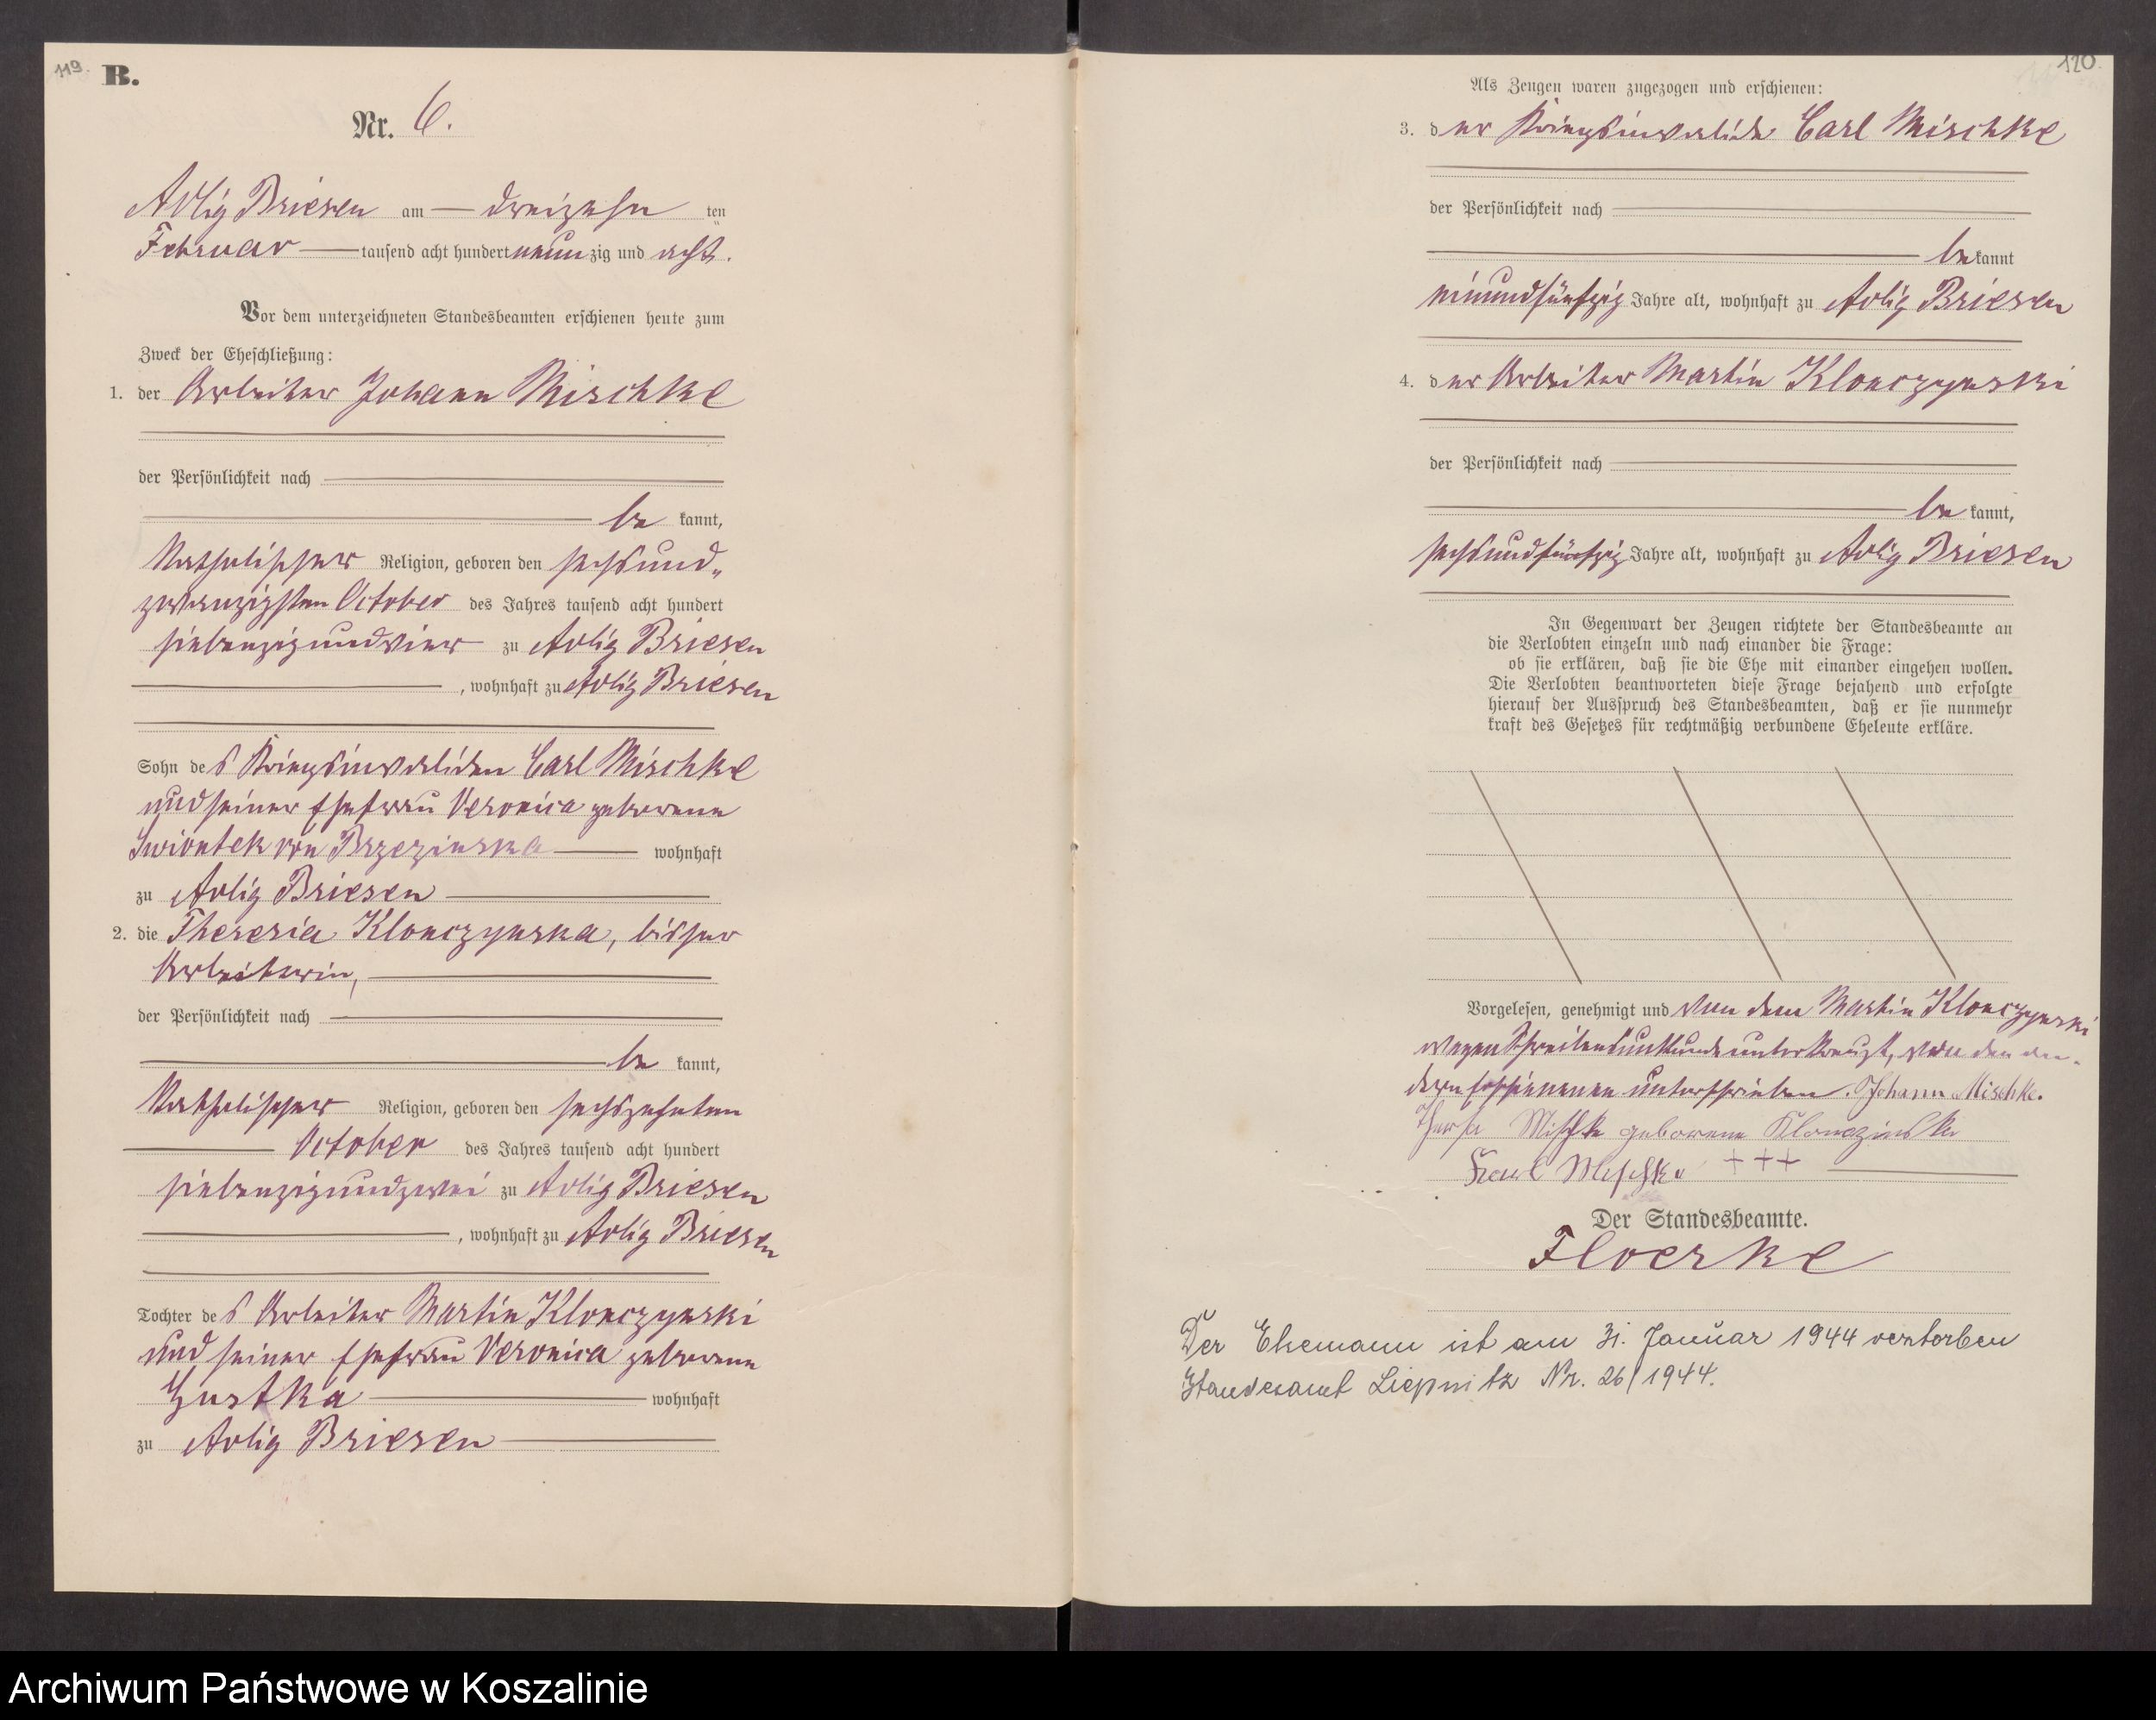 119.
B.
Nr. 6.
Adlig Briesen am dreizehn ten
Februar tausend acht hundert neun zig und acht.
Vor dem unterzeichneten Standesbeamten erschienen heute zum
Zweck der Eheschließung:
1. der Arbeiter Johann Mischke
der Persönlichkeit nach
be kannt,
Katholischer Religion, geboren den sechsund„
zwanzigsten October des Jahres tausend acht hundert
siebenzigundvier zu Adlig Briesen
, wohnhaft zu Adlig Briesen
Sohn des Kriegsinvaliden Carl Mischke
und seiner Ehefrau Veronica geborene
Swiontek von Brzezinska wohnhaft
zu Adlig Briesen
2. die Theresia Klonczynska, bisher
Arbeiterin,
der Persönlichkeit nach
be kannt,
Katholischer Religion, geboren den sechszehnten
October des Jahres tausend acht hundert
siebenzigundzwei zu Adlig Briesen
, wohnhaft zu Adlig Briesen
Tochter des Arbeiter Martin Klonczynski
und seiner Ehefrau Veronica geborene
wohnhaft
zu Adlig Briesen
120.
Als Zeugen waren zugezogen und erschienen:
3. der Kriegsinvalide Carl Mischke
der Persönlichkeit nach
be kannt
neunundfünfzig Jahre alt, wohnhaft zu Adlig Briesen
4. der Arbeiter Martin Klonczynski
der Persönlichkeit nach
be kannt,
sechsundfünfzig Jahre alt, wohnhaft zu Adlig Briesen
In Gegenwart der Zeugen richtete der Standesbeamte an
die Verlobten einzeln und nach einander die Frage:
ob sie erklären, daß sie die Ehe mit einander eingehen wollen.
Die Verlobten beantworteten diese Frage bejahend und erfolgte
hierauf der Ausspruch des Standesbeamten, daß er sie nunmehr
kraft des Gesetzes für rechtmäßig verbundene Eheleute erkläre.
Vorgelesen, genehmigt und von dem Martin Klonczynski
wegen Schreibensunkunde unterkreuzt, von den an-
dern Erschienenen unterschrieben. Johann Mischke.
Mischke geborene Klonczinska
Karl Mischke +++
Der Standesbeamte.
Floerke
Der Ehemann ist am 31. Januar 1944 verstorben
Standesamt Liepnitz Nr. 26/1944.
Archiwum Państwowe w Koszalinie